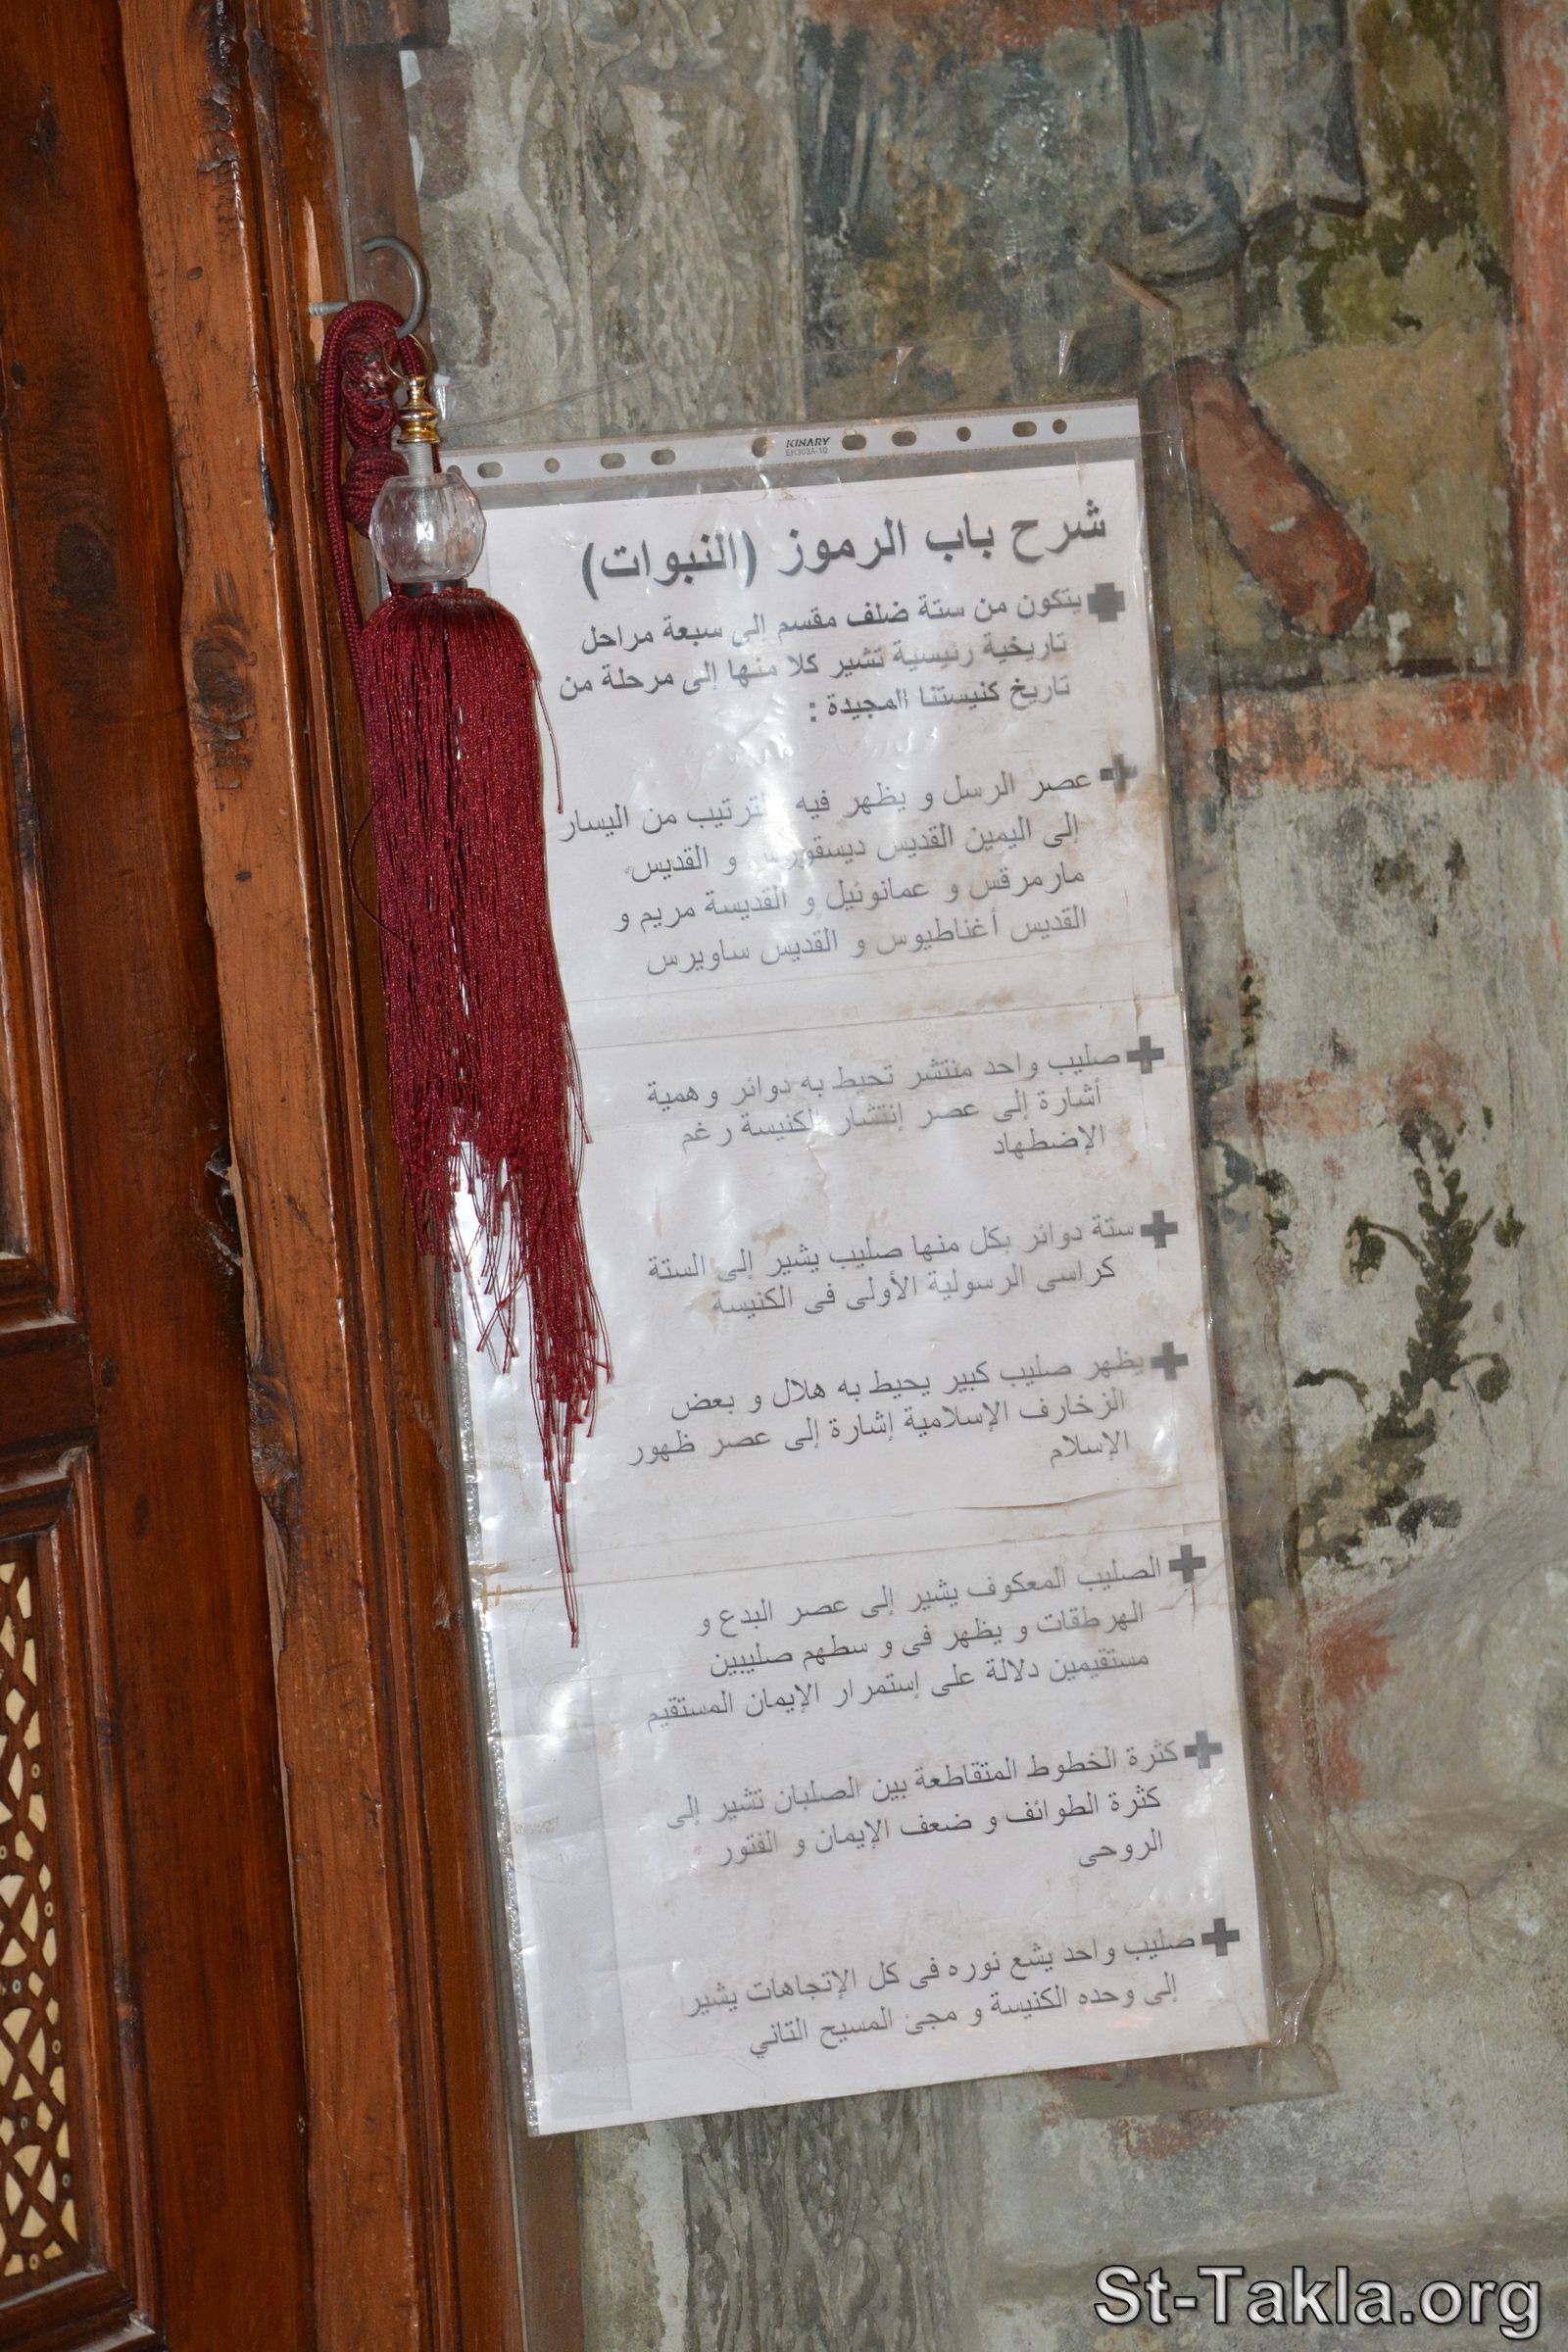 KINARY
EH303A-10
شرح باب الرموز (النبوات)
يتكون من ستة ضلف مقسم إلى سبعة مراحل
تاريخية رئيسية تشير كلا منها إلى مرحلة من
تاريخ كنيستنا المجيدة :
عصر الرسل و يظهر فيه الترتيب من اليسار
إلى اليمين القديس ديسقورس و القديس
مارمرقس و عمانوئيل و القديسة مريم و
القديس أغناطيوس و القديس ساويرس
صليب واحد منتشر تحيط به دوائر وهمية
أشارة إلى عصر إنتشار الكنيسة رغم
الإضطهاد
ستة دوائر بكل منها صليب يشير إلى الستة
كراسى الرسولية الأولى فى الكنيسة
يظهر صليب كبير يحيط به هلال و بعض
الزخارف الإسلامية إشارة إلى عصر ظهور
الإسلام
الصليب المعكوف يشير إلى عصر البدع و
الهرطقات و يظهر فى و سطهم صليبين
مستقيمين دلالة على إستمرار الإيمان المستقيم
كثرة الخطوط المتقاطعة بين الصلبان تشير إلى
كثرة الطوائف و ضعف الإيمان و الفتور
الروحى
صليب واحد يشع نوره فى كل الإتجاهات يشير
إلى وحده الكنيسة و مجئ المسيح التاني
St-Takla.org